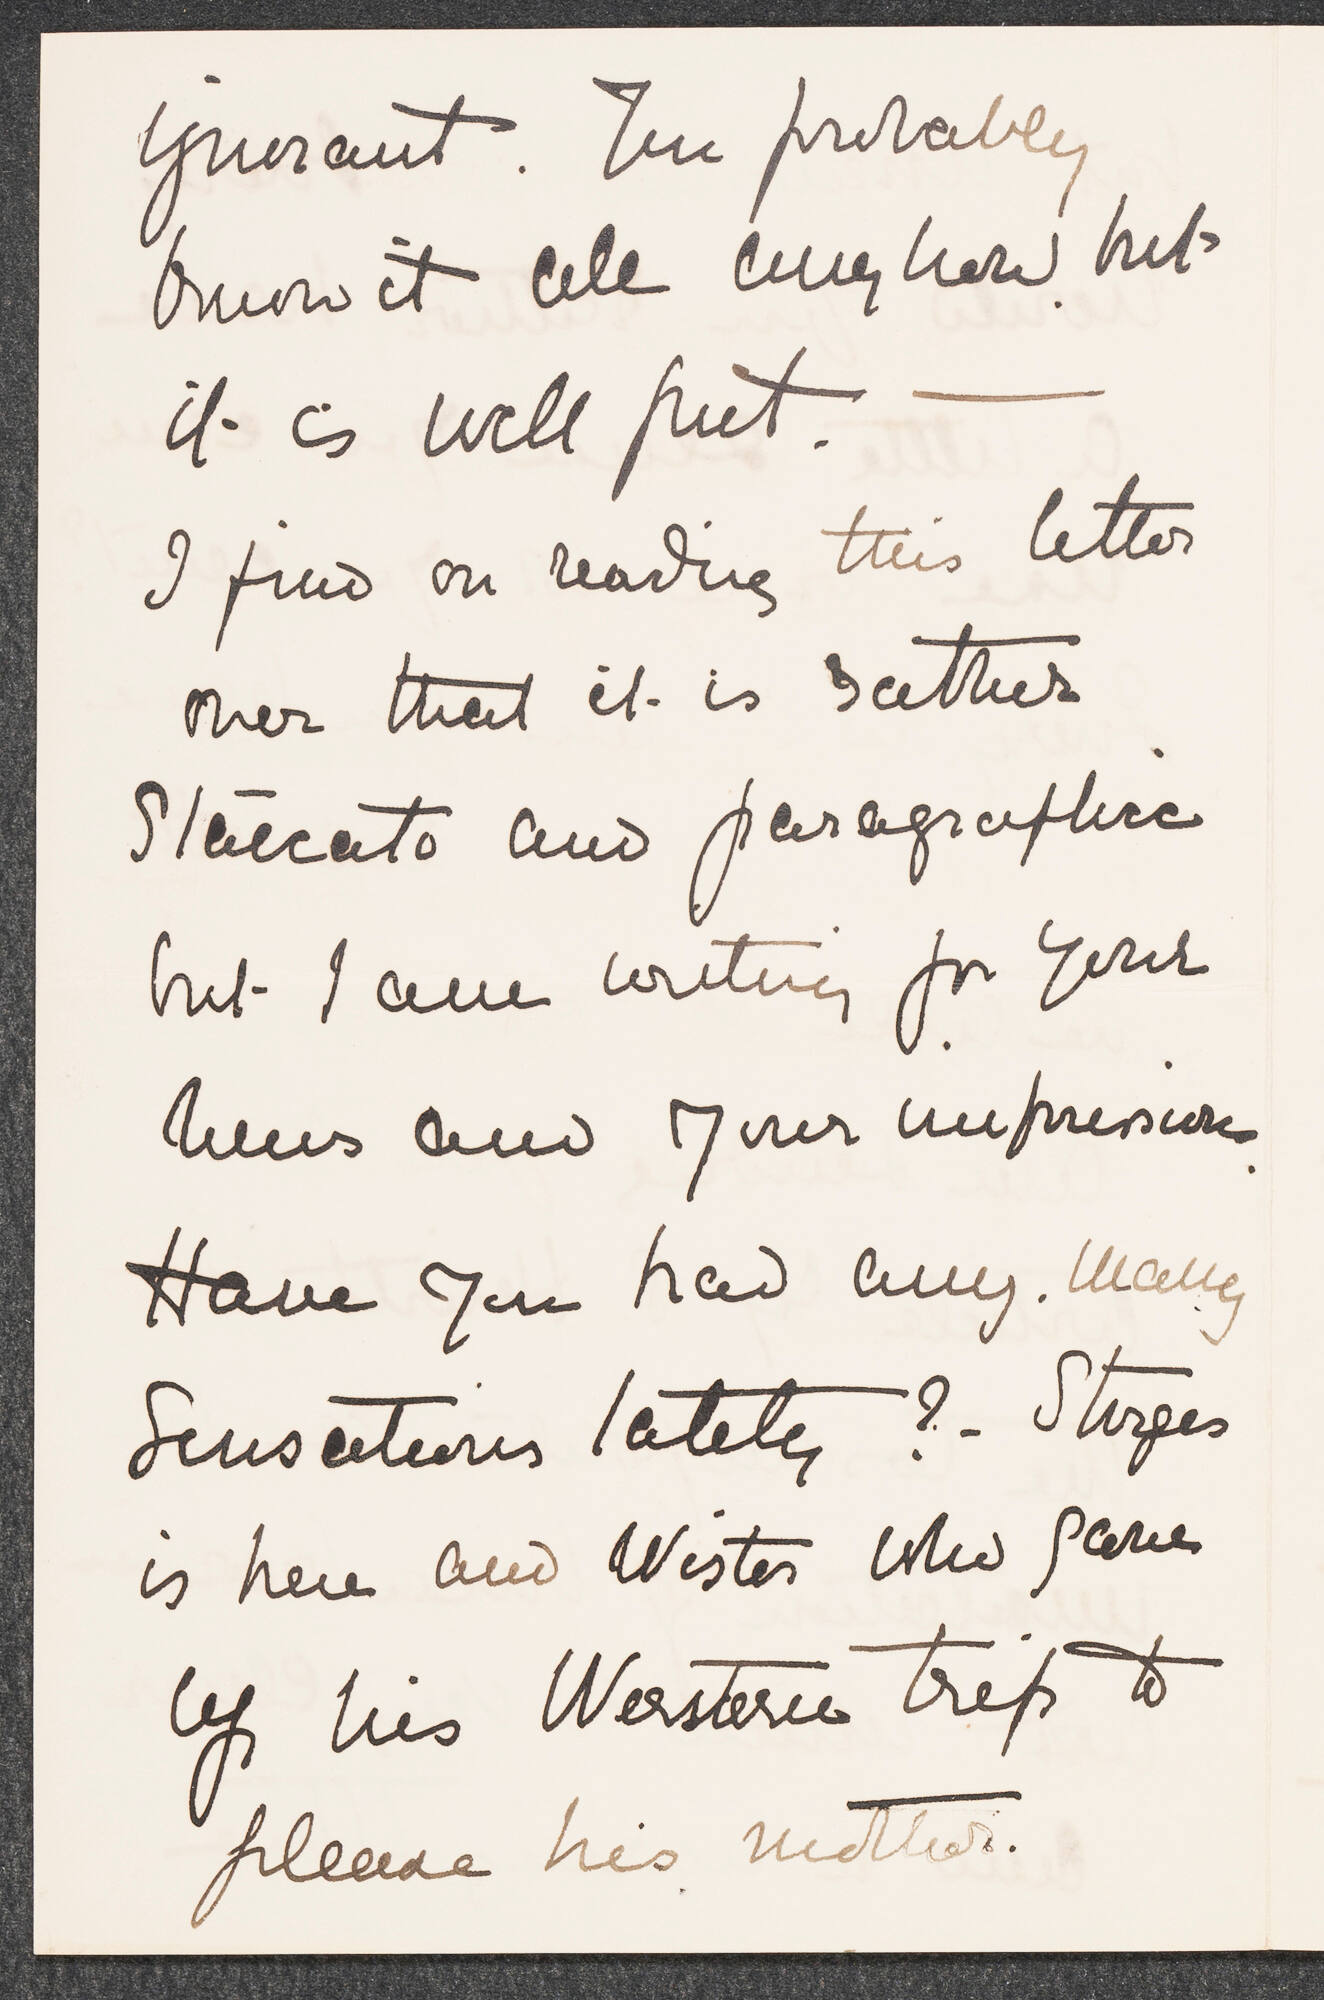 ignorant. You probably
know it all anyhow. but
it is well put. —
I find on reading this letter
over that it is rather
Staccato and paragraphic
but I am writing for your
news and your impressions.
Have you had any. many
Sensations lately? - Sturges
is here and Wister who gave
up his Western trip to
please his mother.